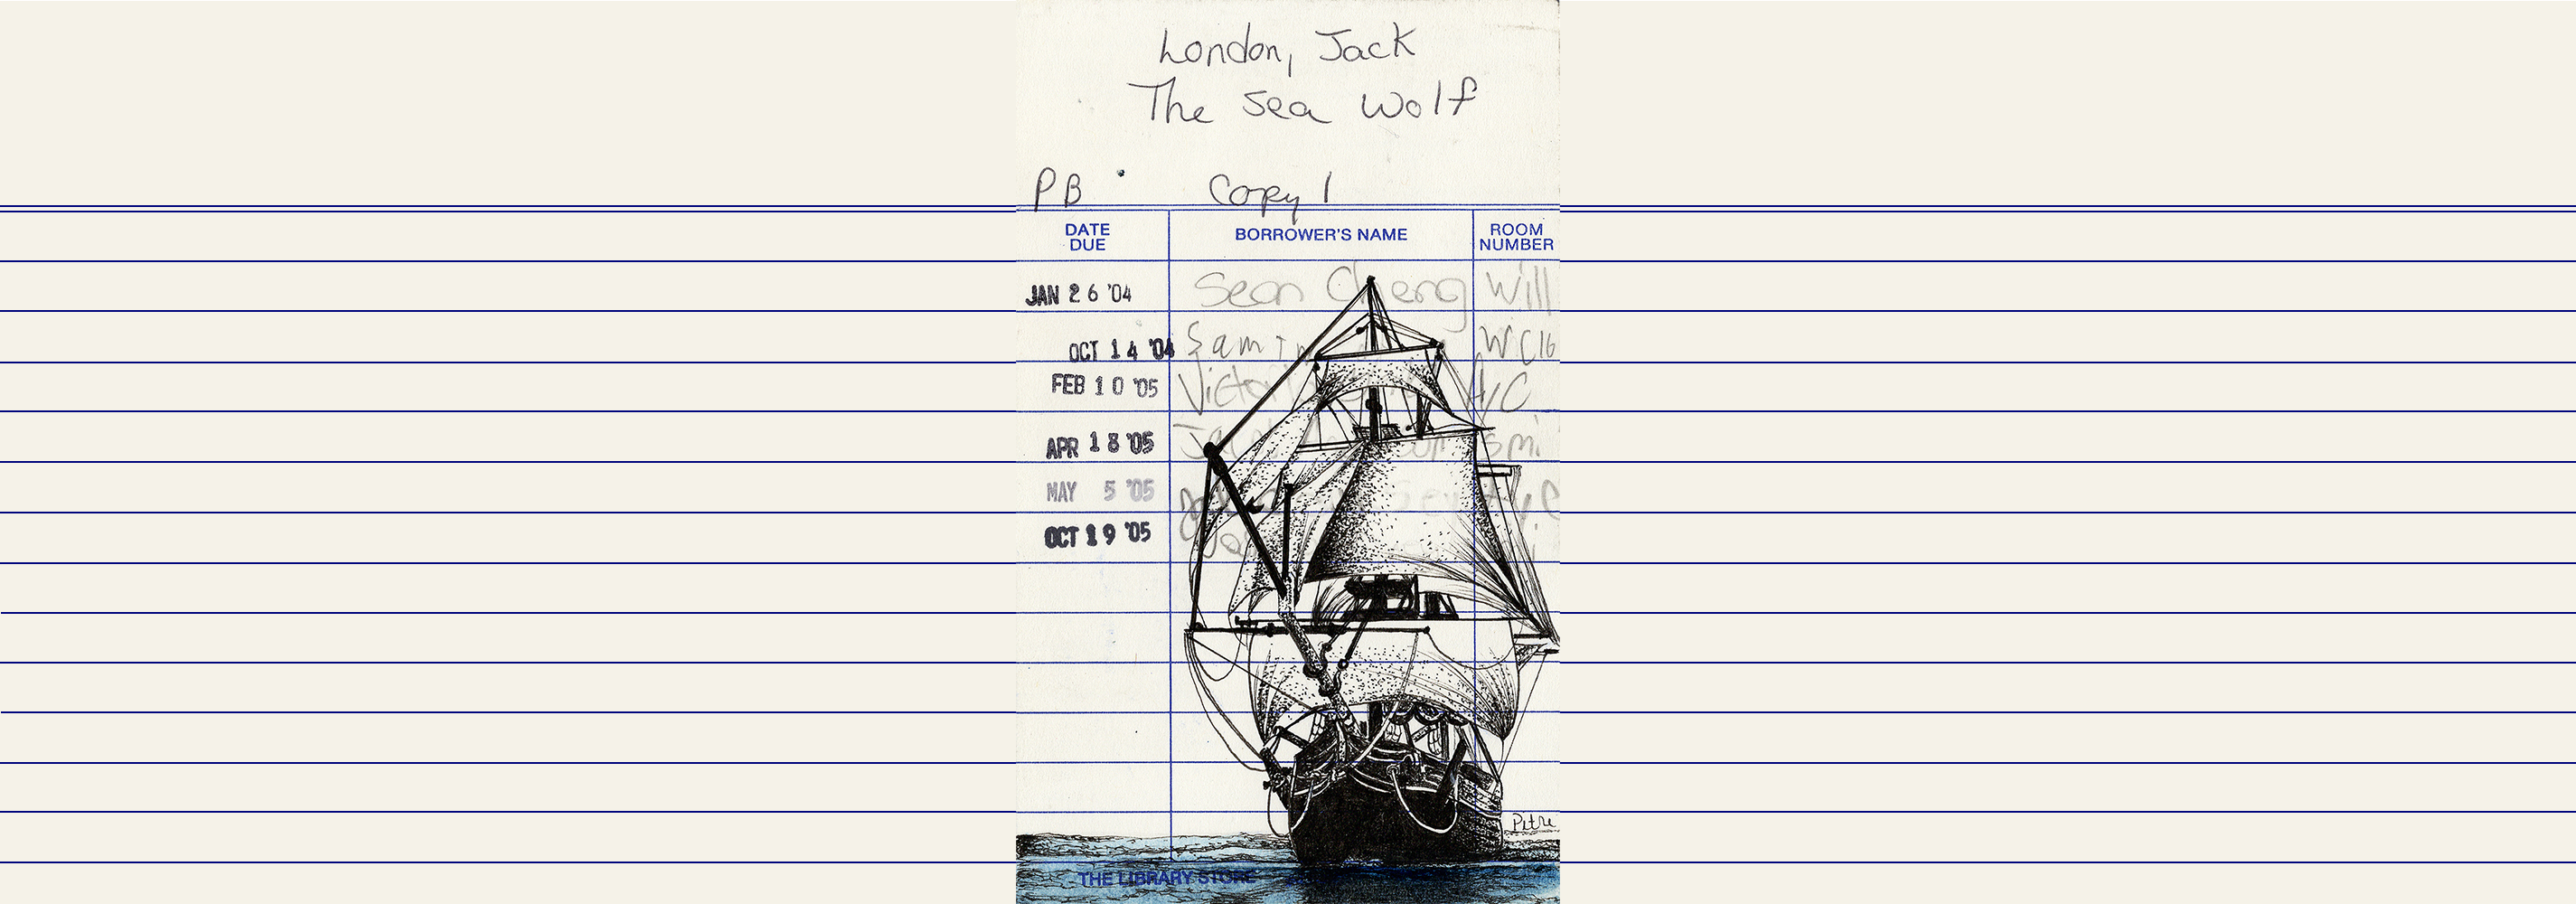 London, Jack
The Sea Wolf
PB Copy 1
DATE DUE BORROWER'S NAME ROOM NUMBER
JAN 26 '04 Sean Cheng Will
OCT 14 '04 Sam WC16
FEB 10 '05
APR 18 '05
MAY 5 '05
OCT 19 '05
Petru
THE LIBRARY STORE